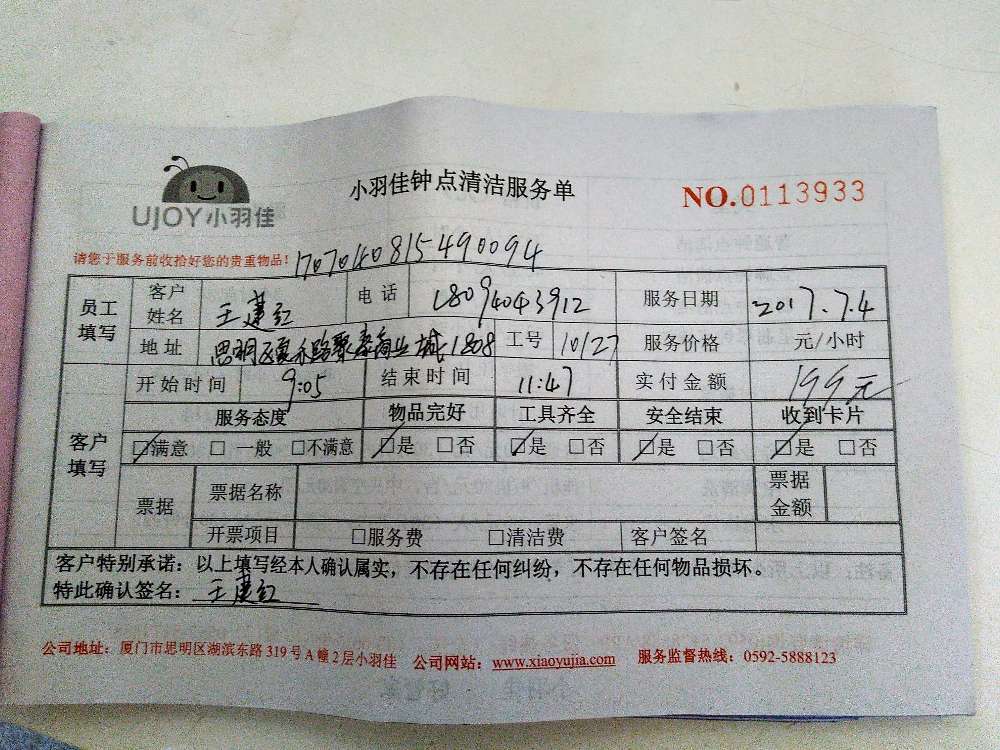 UJOY小羽佳
小羽佳钟点清洁服务单
NO.0113933
请您于服务前收拾好您的贵重物品！
170704081549 0094
员工填写 客户姓名 王建红 电话 18094043912 服务日期 2017.7.4
地址 思明区 商业城1808 工号 10127 服务价格 元/小时
开始时间 9:05 结束时间 11:47 实付金额 199元
客户填写 服务态度 物品完好 工具齐全 安全结束 收到卡片
☑满意 □一般 □不满意 ☑是 □否 ☑是 □否 ☑是 □否 ☑是 □否
票据 票据名称 票据金额
开票项目 □服务费 □清洁费 客户签名
客户特别承诺：以上填写经本人确认属实，不存在任何纠纷，不存在任何物品损坏。
特此确认签名：王建红
公司地址：厦门市思明区湖滨东路319号A幢2层小羽佳 公司网站：www.xiaoyujia.com 服务监督热线：0592-5888123